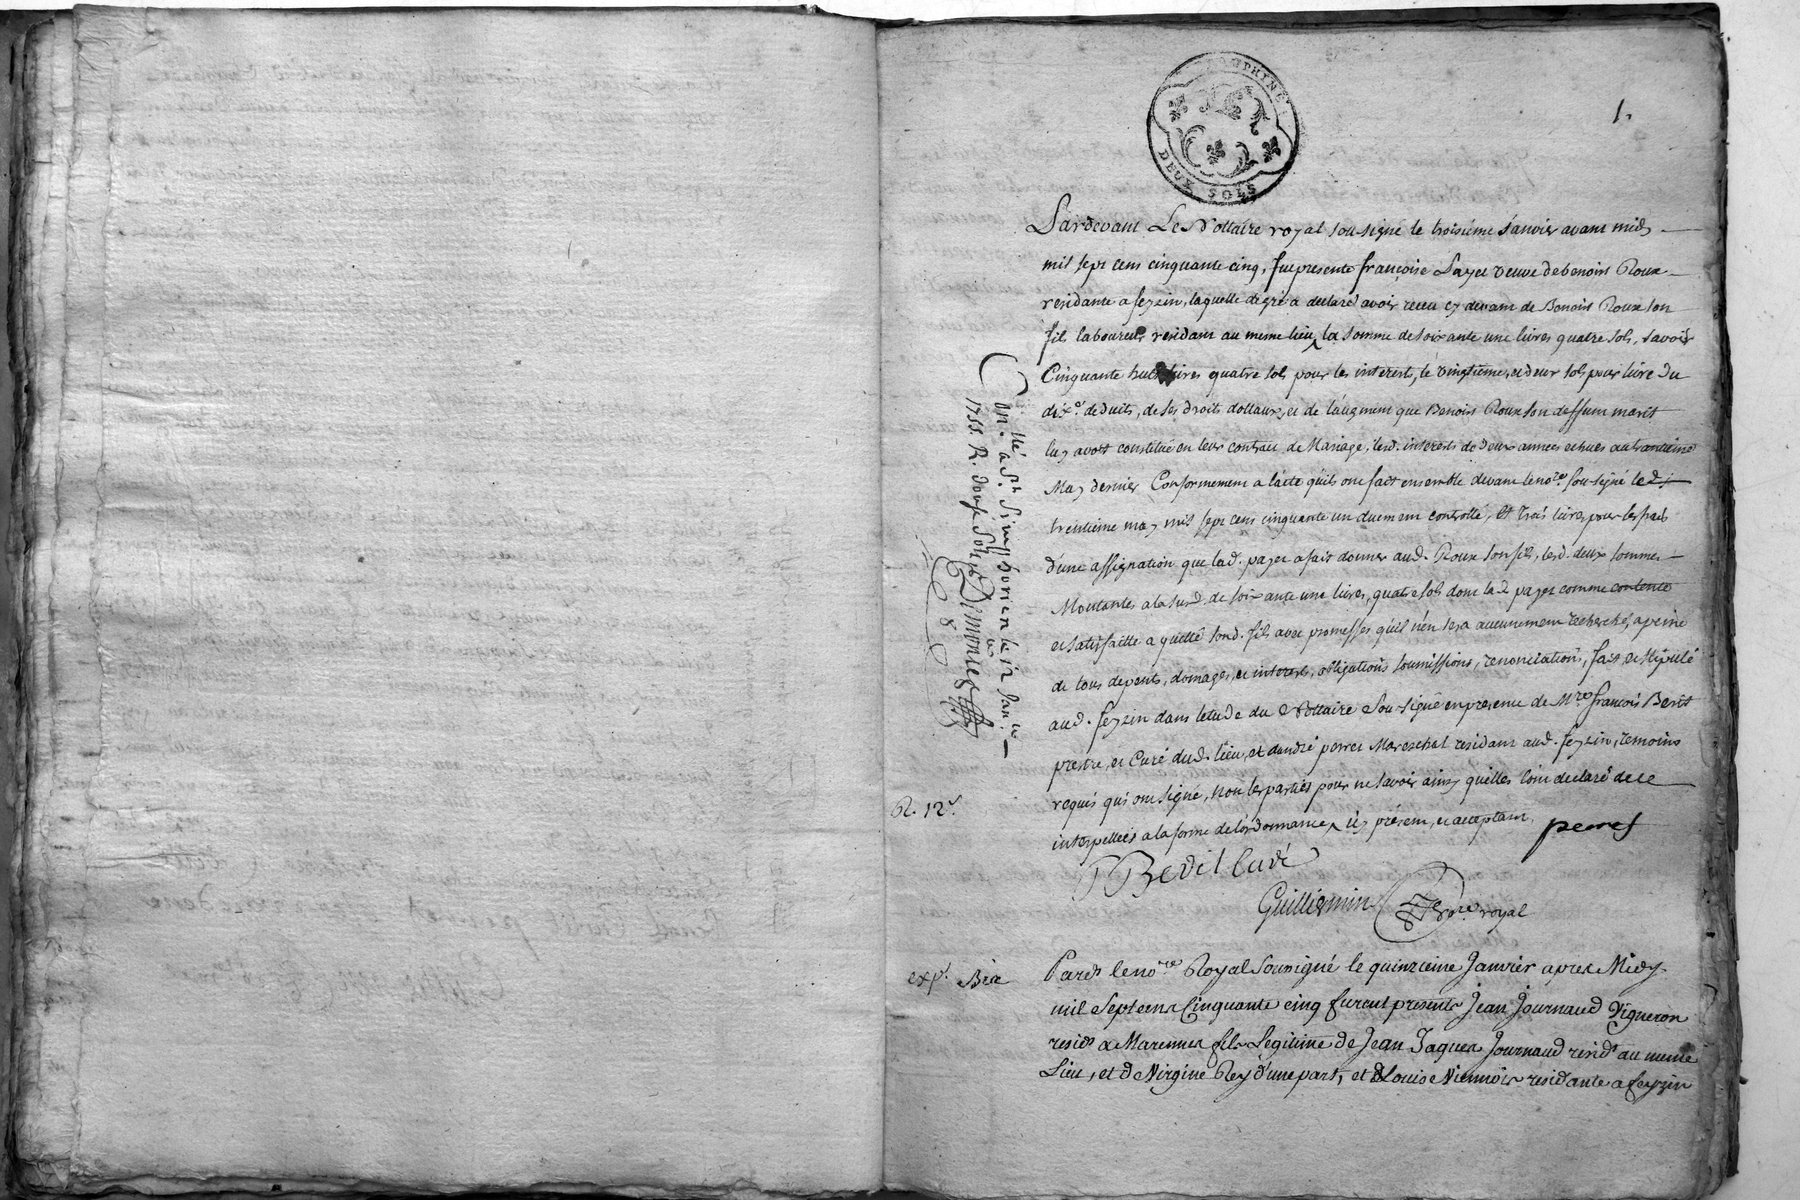 DAUPHINÉ
DEUX SOLS
1.
Pardevant Le Nottaire royal sousigné le troisiéme Janvier avant midy
mil sept cens cinquante cinq, fut presente françoise Payet veuve de benoist Roux
residante a feyzin, laquelle de gré a declaré avoir receu cy devant de Benoist Roux son
fils laboureur residant au meme lieu, la somme de soixante une livres quatre sols, savoir
Cinquante huit livres quatre sols pour les interests, le vingtieme, et deux sols pour livre du
dix.e deduits, de ses droits dottaux, et de l'augment que Benoist Roux son deffunt marit
luy avoit constitué en leur contrat de Mariage, lesd. interests de deux années echues au trentieme
May dernier Conformement a l'acte qu'ils ont fait ensemble devant le no.re sousigné led.
trentieme may mil sept cens cinquante un duement controllé, Et trois livres pour les frais
d'une assignation que lad. payet a fait donner aud. Roux son fils, lesd. deux sommes
Montantes a la sud. de soixante une livres, quatre sols dont lad. payet comme contente
et satisfaitte a quitté sond. fils avec promesses qu'il n'en sera aucunement recherché, a peine
de tous depents, domages, et interests, obligations soumissions, renonciations, fait et stipulé
aud. feyzin dans letude du Nottaire Sousigné en presence de M.re françois Berit
prestre, et Curé dud. lieu, et d'andré perret Mareschal residant aud. feyzin, temoins
requis qui ont signé, non les parties pour ne savoir ainsy quelles l'ont declaré de ce
interpellées a la forme de l'ordonnance, icy présent, et acceptant
perret
Guilliermin no.re royal
Con.llé a S.t Simphorien le 12 Jan.er
1755. R. douze sols
R. 12 s
exp.
Pard.t le no.re Royal Sousigné le quinzieme Janvier apres Midy
mil Sept cens Cinquante cinq furent presents Jean Journaud Vigneron
resid.t a Marennes fils Legitime de Jean Jaques Journaud resid.t au meme
Lieu, et de Virgine Rey d'une part, et Louise Viennois residante a feyzin